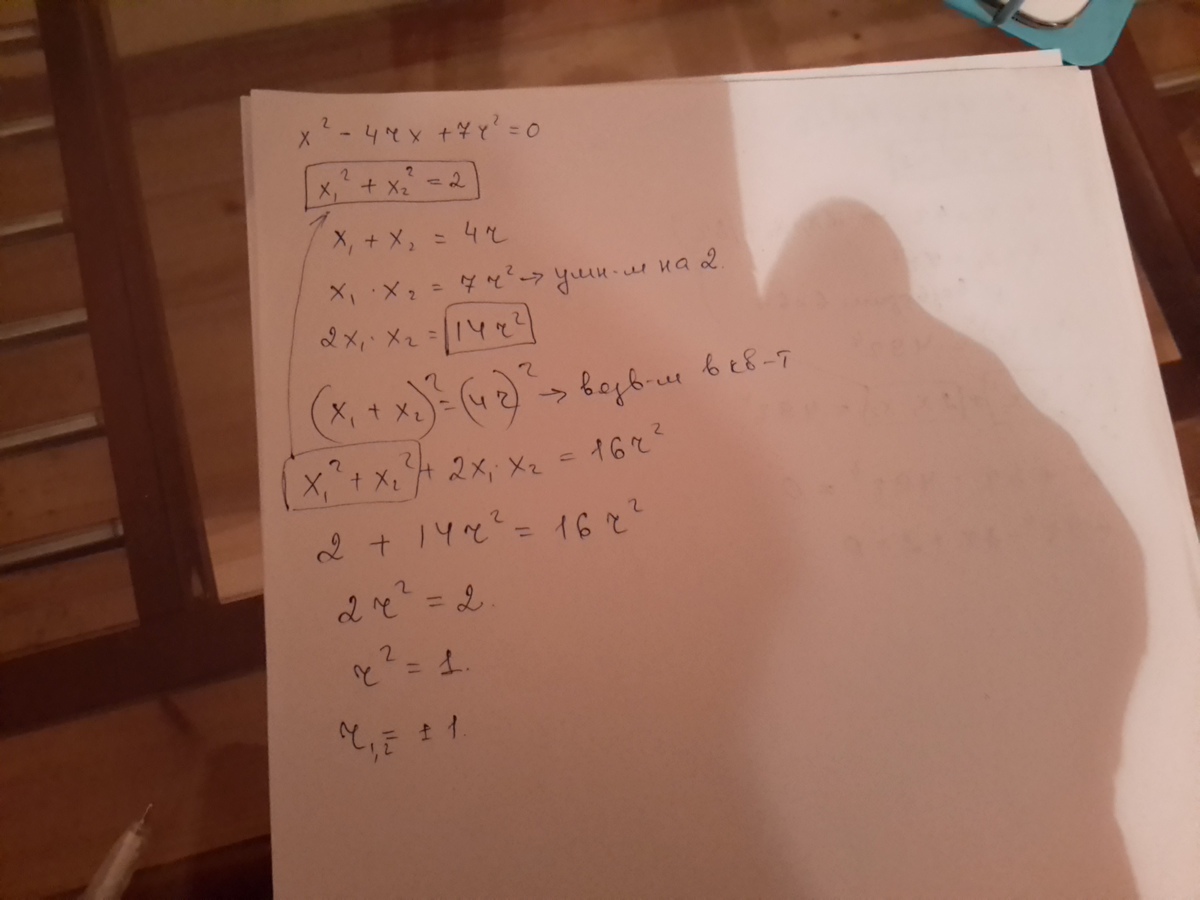 x² - 4rx + 7r² = 0
x₁² + x₂² = 2
x₁ + x₂ = 4r
x₁ · x₂ = 7r² → умн-м на 2.
2x₁ · x₂ = 14r²
(x₁ + x₂)² = (4r)² → возв-м в кв-т
x₁² + x₂² + 2x₁ · x₂ = 16r²
2 + 14r² = 16r²
2r² = 2.
r² = 1.
r₁,₂ = ± 1.